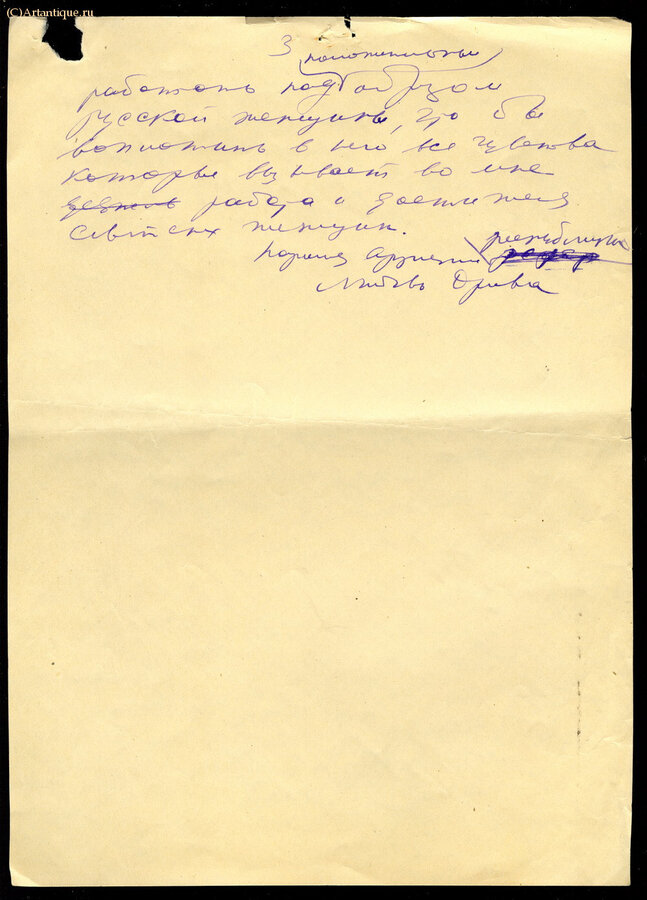 (C)Artantique.ru
3
положительным
работать над образом
русской женщины, что бы
воплотить в него все чувства
которые вызывает во мне
работа и
советских женщин.
республики
Народная артистка
Любовь Орлова